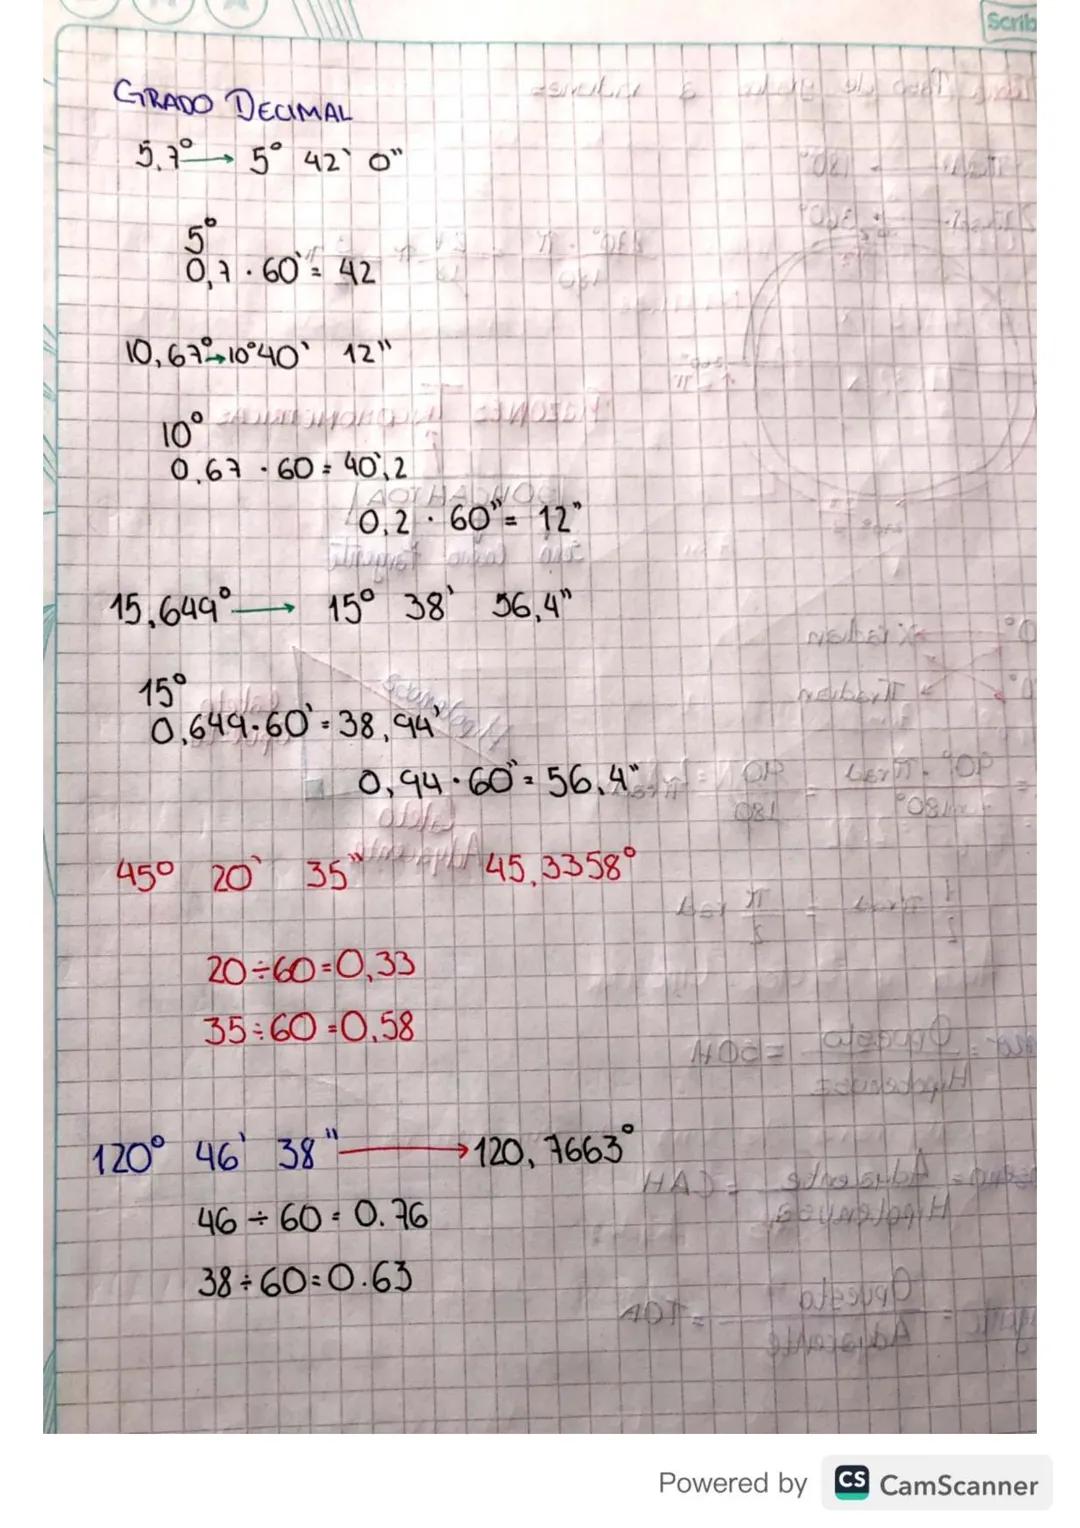 Scrib
GRADO DECIMAL
5,7° → 5° 42` 0"
5°
0,7 · 60` = 42
10,67° → 10° 40` 12"
10°
0,67 · 60 = 40`,2
0,2 · 60" = 12"
15,649° → 15° 38' 56,4"
15°
0,649·60' = 38,94'
0,94·60" = 56,4"
45° 20` 35" 45,3358°
20÷60=0,33
35÷60=0,58
120° 46' 38" → 120,7663°
46 ÷ 60 = 0.76
38÷60=0.63
Powered by CS CamScanner